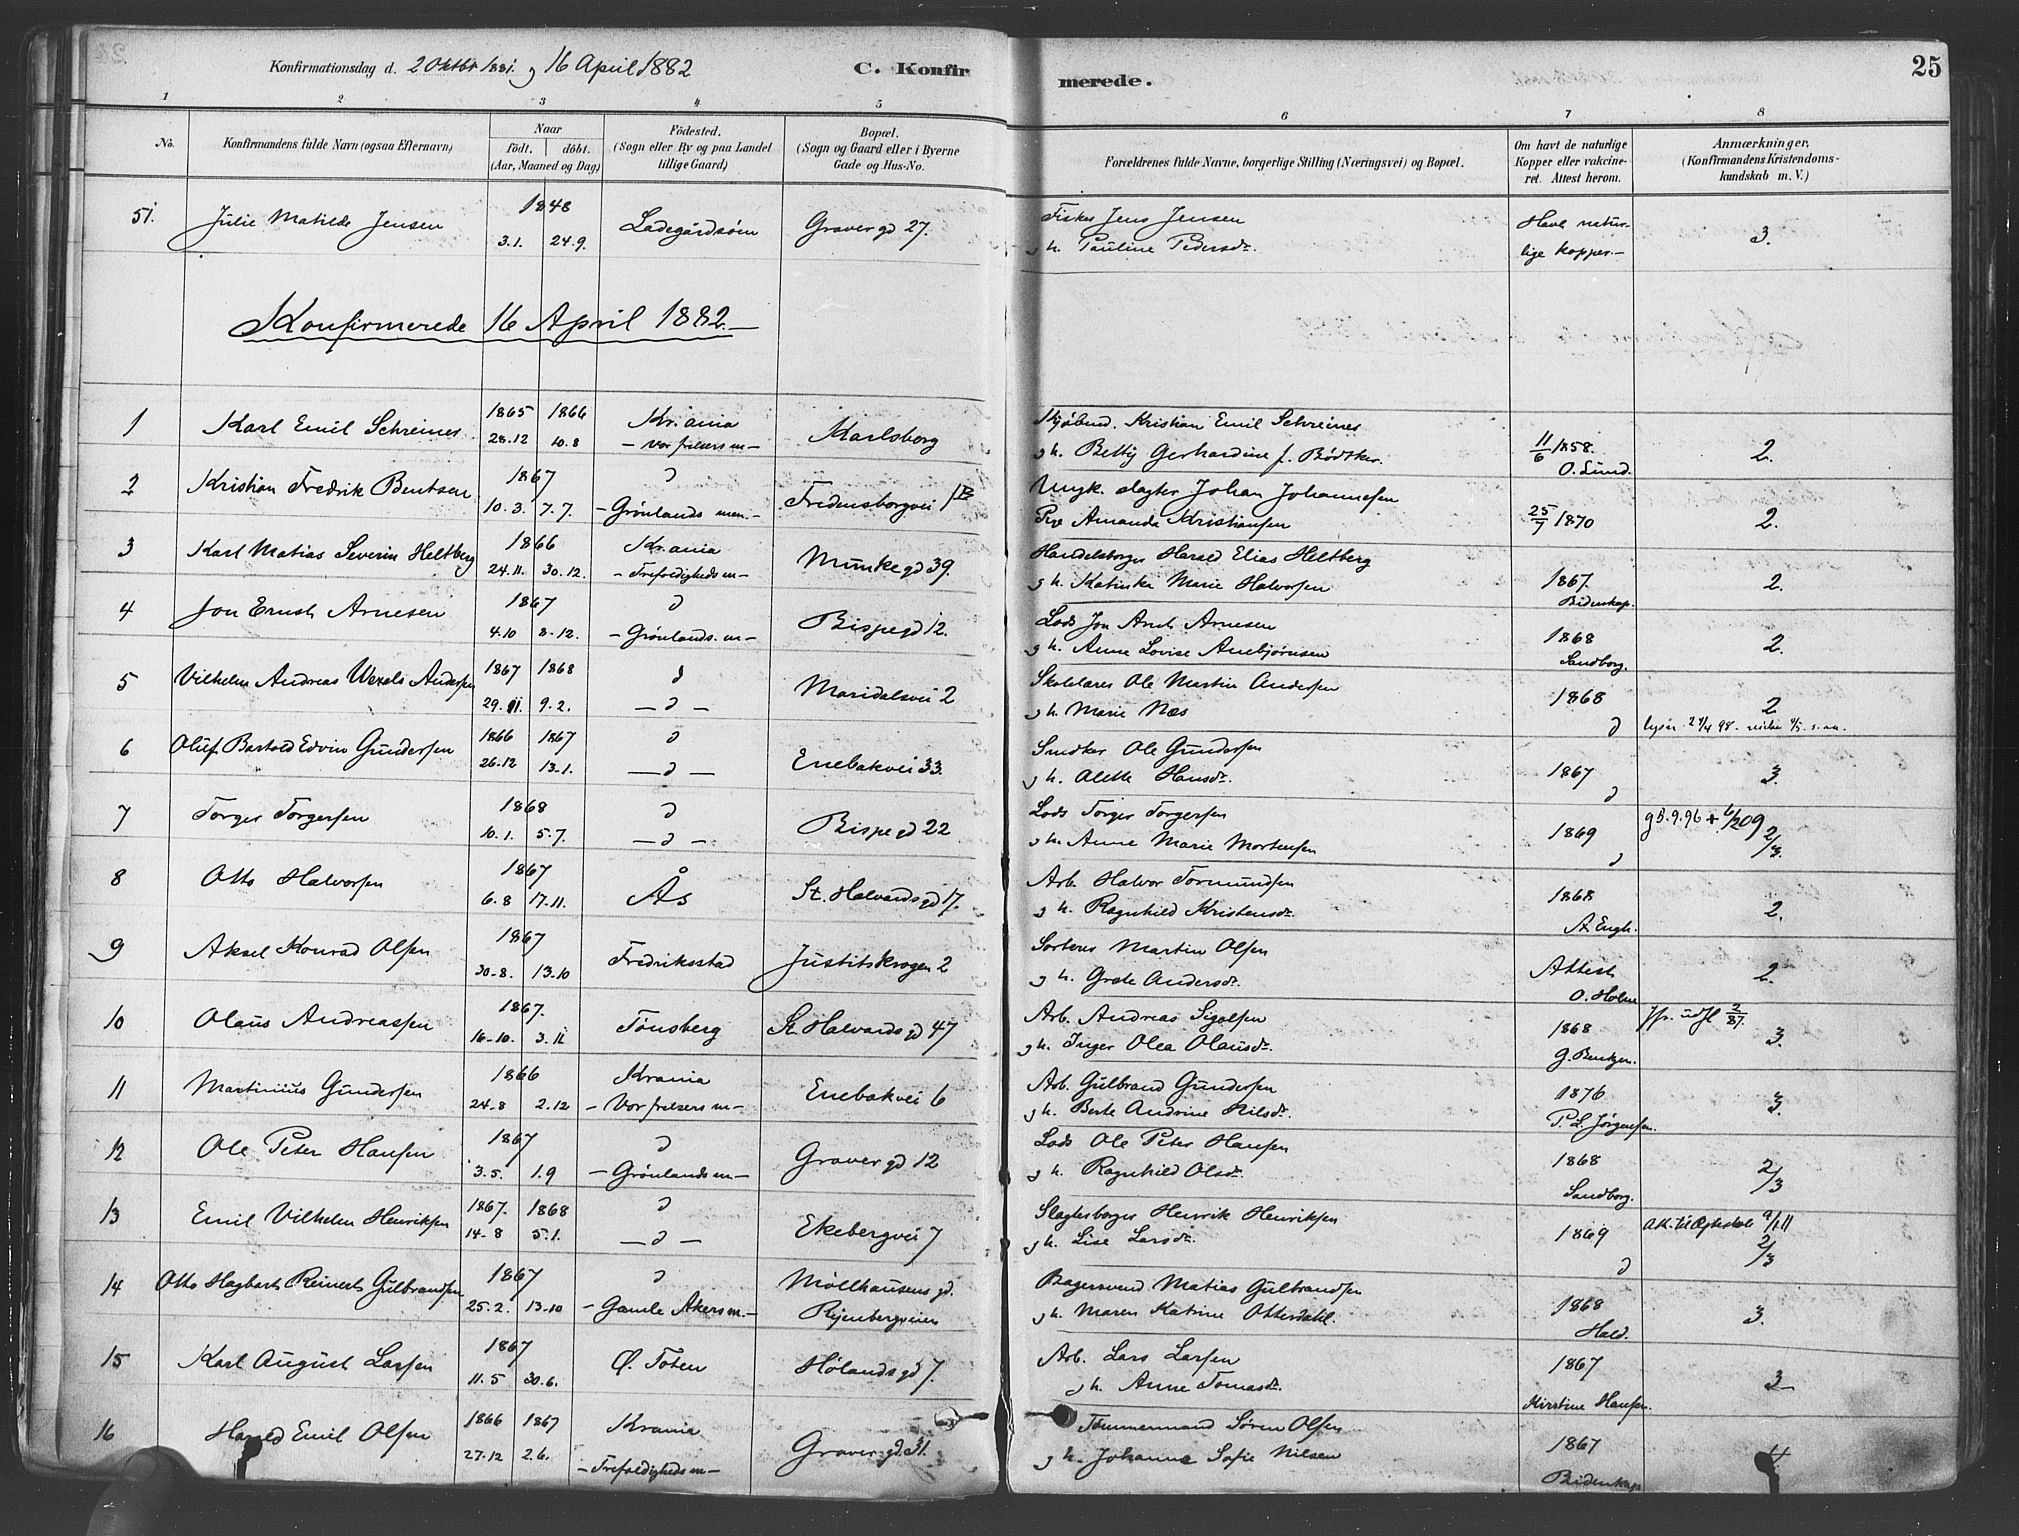 Konfirmationsdag d. 2 Oktbr 1881. og 16 April 1882 C. Konfirmerede. 25
1 2 3 4 5 6 7 8
No. Konfirmandens fulde Navn (ogsaa Efternavn) Naar født. døbt. (Aar, Maaned og Dag) Födested. (Sogn eller By og paa Landet tillige Gaard) Bopæl. (Sogn og Gaard eller i Byerne Gade og Hus-No. Forældrenes fulde Navne, borgerlige Stilling (Næringsvei) og Bopæl. Om havt de naturlige Kopper eller vakcineret. Attest herom. Anmærkninger. (Konfirmandens Kristendomskundskab m. V.)
51. Julie Matilde Jensen 1848 3.1. 24.9. Ladegårdsøen Gravergd 27. Fisker Jens Jensen
og h. Pauline Pedersdr. Havt naturlige kopper.— 3.
Konfirmerede 16 April 1882.—
1 Karl Emil Schreiner 1865 1866 Kr.ania Karlsborg Kjøbmd. Kristian Emil Schreiner
28.12 10.8 — Vor frelsers m — og h. Betty Gerhardine f. Bødtker. 11/6 1858. O. Lund. 2.
2 Kristian Fredrik Bentsen 1867 d Fredensborgvei 1B Ungk. slagter Johan Johannesen
10.3. 7.7. — Grønlands men. — Pige Amanda Kristiansen 25/7 1870 2.
3 Karl Matias Severin Heltberg 1866 Kr.ania Munkegd 39. Handelsborger Harald Elias Heltberg
24.11. 30.12. — Trefoldigheds m — og h. Katinka Marie Halvorsen 1867. Bidenkap. 2.
4 Jon Ernst Arnesen 1867 d Bispegd 12. Lods Jon Arnt Arnesen
4.10 8.12. — Grønlands. m — og h. Anne Lovise Anebjørnsen 1868 Sandborg. 2.
5 Vilhelm Andreas Wexels Andersen 1867 1868 d Maridalsvei 2 Skolelærer Ole Martin Andersen
29.11. 9.2. — d — og h. Marie Næs 1868 d 2.
6 Oluf Bartold Edvin Gundersen 1866 1867 d Enebakvei 33. Snedker Ole Gundersen
26.12 13.1. — d — og h. Alette Hansdr. 1867 d 3.
7 Torger Torgersen 1868 d Bispegd 22 Lods Torger Torgersen
10.1. 5.7. — d — og h. Anne Marie Mortensen 1869 d 2/3.
8 Otto Halvorsen 1867 Ås St. Halvardsgd 17. Arb. Halvor Tormundsen
6.8 17.11. og h. Ragnhild Kristensdr. 1868 A. Engh. 2.
9 Aksel Konrad Olsen 1867 Fredriksstad Justitskrogen 2 Sorterer Martin Olsen
30.8. 13.10 og h. Grete Andersdr. Attest O. Holm 2.
10 Olaus Andreassen 1867. Tønsberg St. Halvardsgd 47 Arb. Andreas Sigolsen
16.10. 3.11 og h. Inger Olea Olausdr. 1868 G. Bentzen. 3.
11 Martinius Gundersen 1866 Krania Enebakvei 6 Arb. Gulbrand Gundersen
24.8 2.12 — Vor frelsers m — og h. Berte Andrine Nilsdr. 1876 P. L. Jørgensen. 3.
12 Ole Peter Hansen 1867 d Gravergd 12 Lods Ole Peter Hansen
3.5. 1.9 — Grønlands m — og h. Ragnhild Olsdr. 1868 Sandborg. 2/3
13 Emil Vilhelm Henriksen 1867. 1868 d Ekebergvei 7 Slagterborger Henrik Henriksen
14.8 5.1. — d — og h. Lise Larsdr. 1869 d 2/3
14 Otto Hagbart Reinert Gulbrandsen 1867 d Møllhausens gd. Bagersvend Matias Gulbrandsen
25.2. 13.10 — Gamle Akers m — Ryenbergveien og h. Maren Katrine Otterdahl. 1868 Hald. 3.
15 Karl August Larsen 1867 Ø. Toten Hølandsgd 7. Arb. Lars Larsen
11.5 30.6. og h. Anne Tomasdr. 1867 Kirstine Hansen. 3
16 Harald Emil Olsen 1866 1867 Krania Gravergd. 31. Tømmermand Søren Olsen
27.12 2.6. — Trefoldigheds m — og h. Johanna Sofie Nilsen 1867 Bidenkap